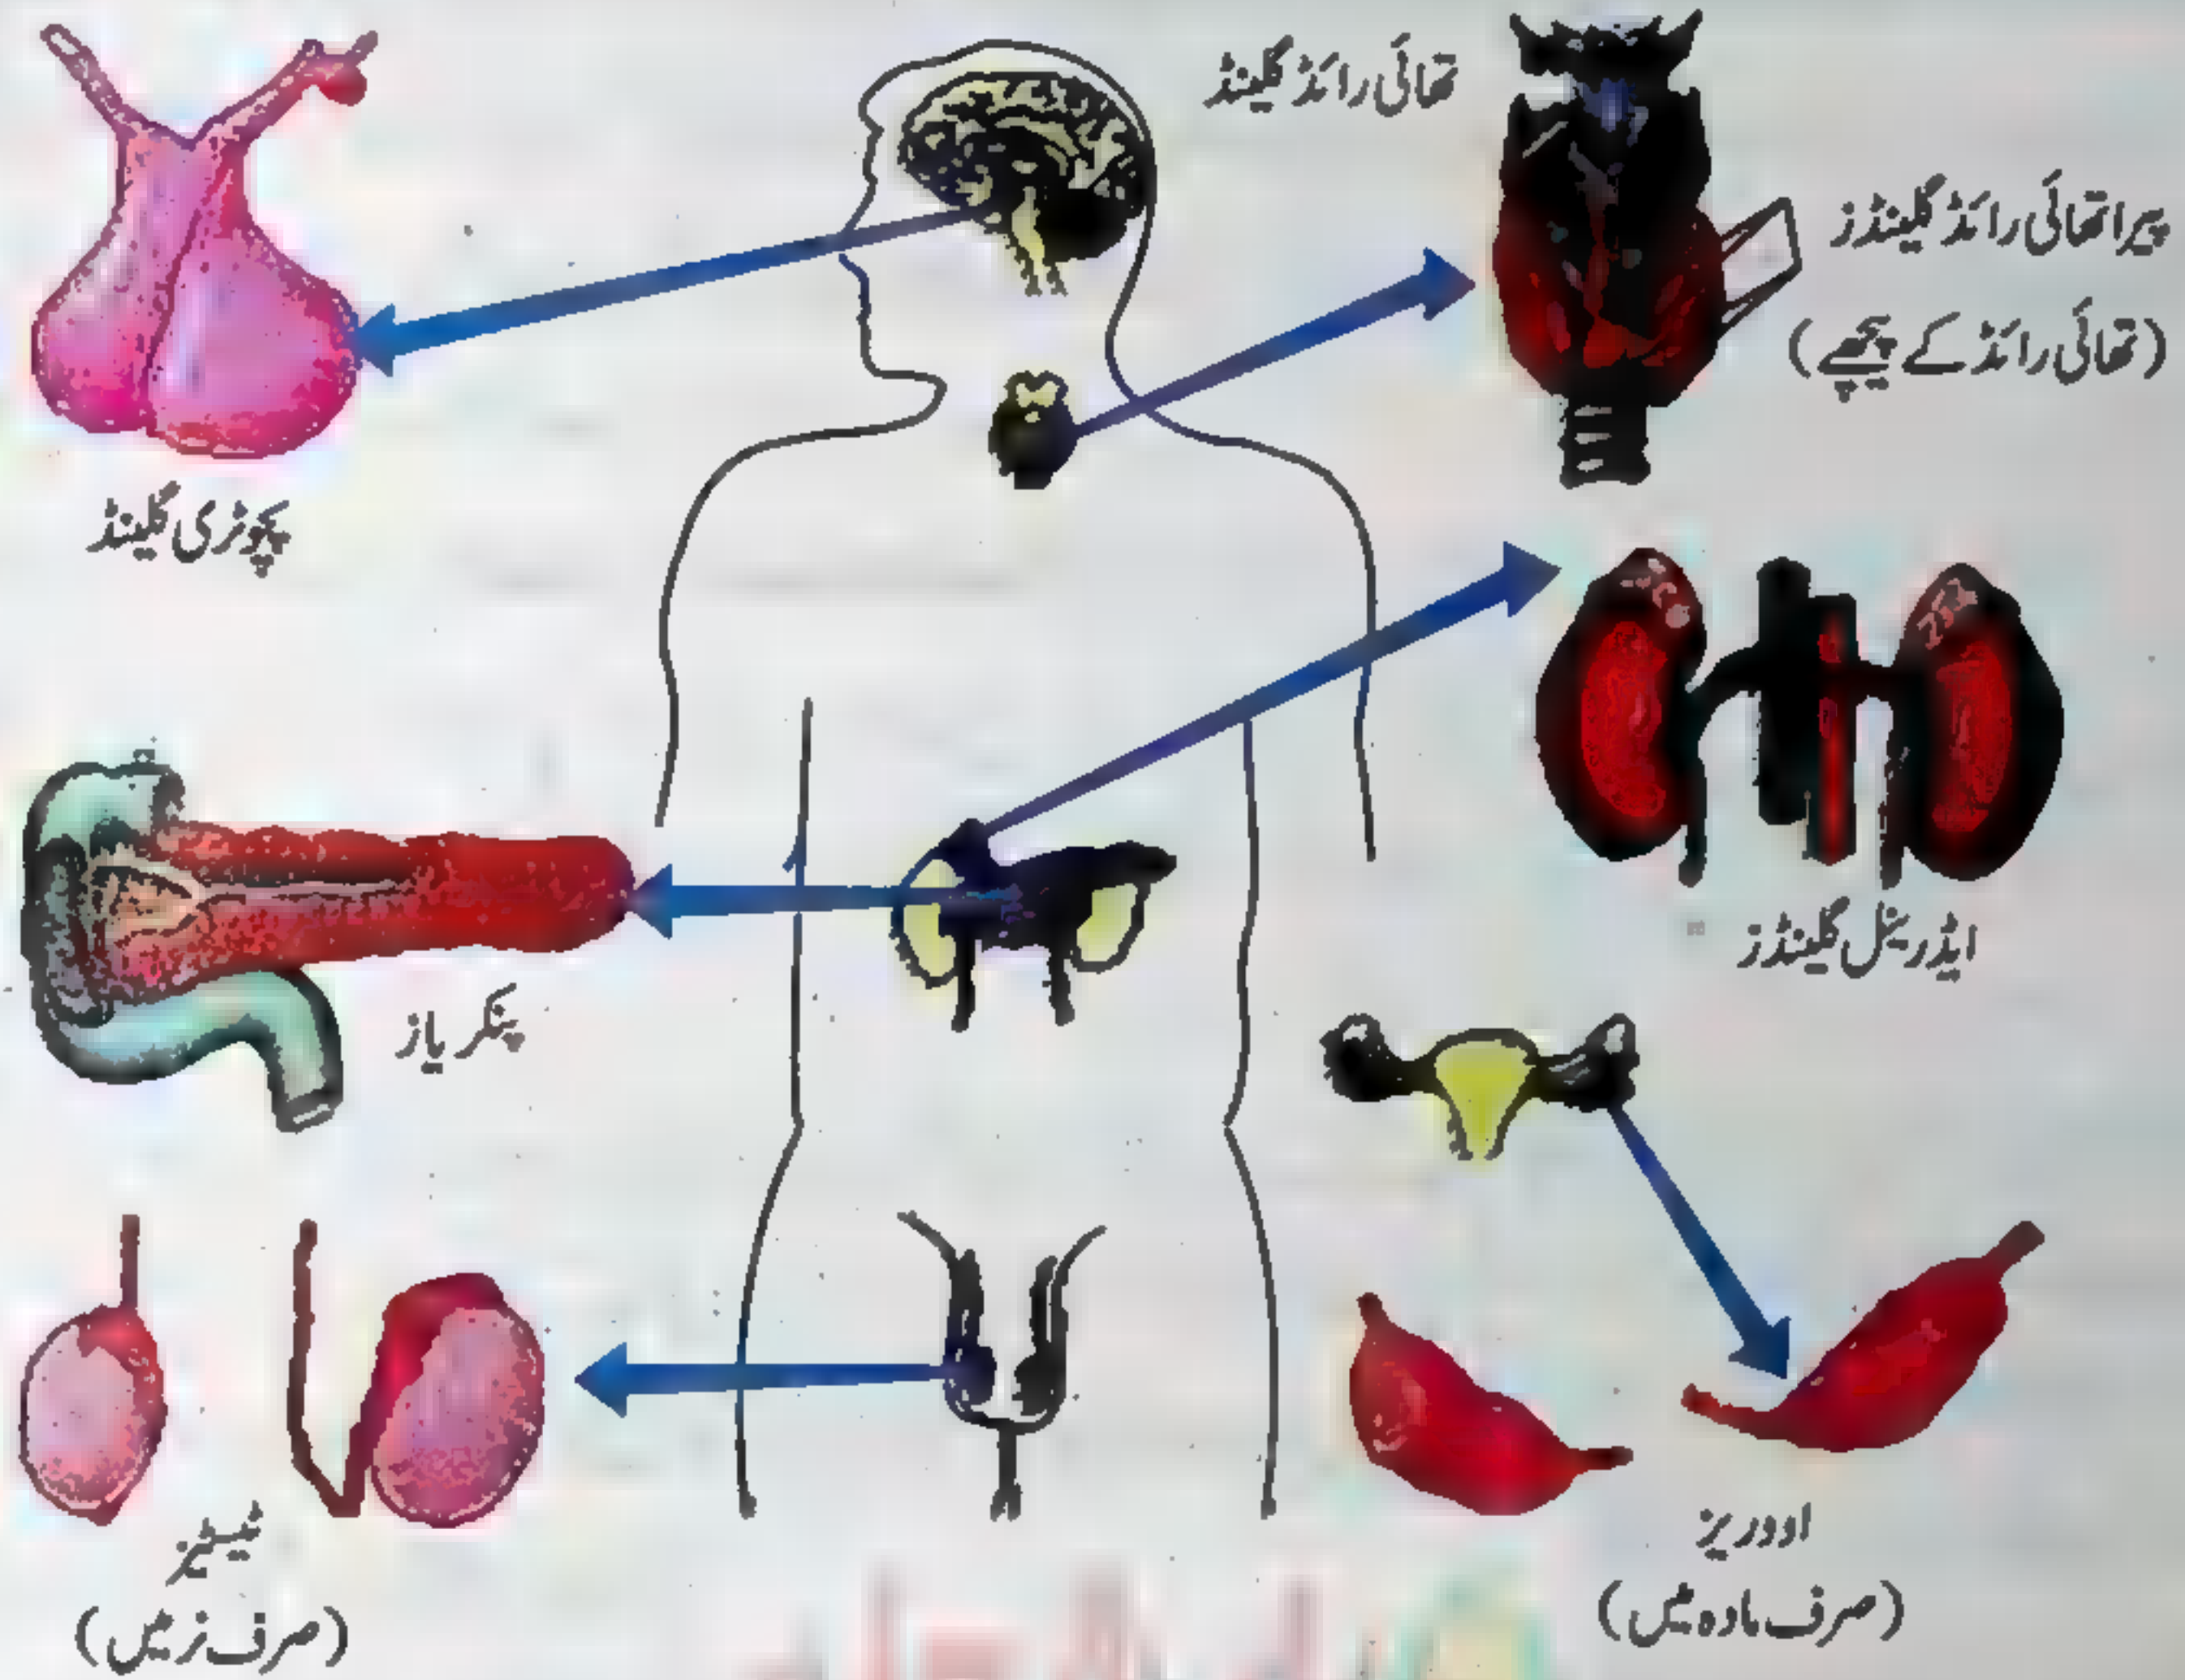 تھائی رائڈ گلینڈ
پیراتھائی رائڈ گلینڈز
(تھائی رائڈ کے پیچھے)
پچوٹری گلینڈ
ایڈرینل گلینڈز
پنکریاز
اووریز
(صرف مادہ میں)
ٹیسٹیز
(صرف نر میں)